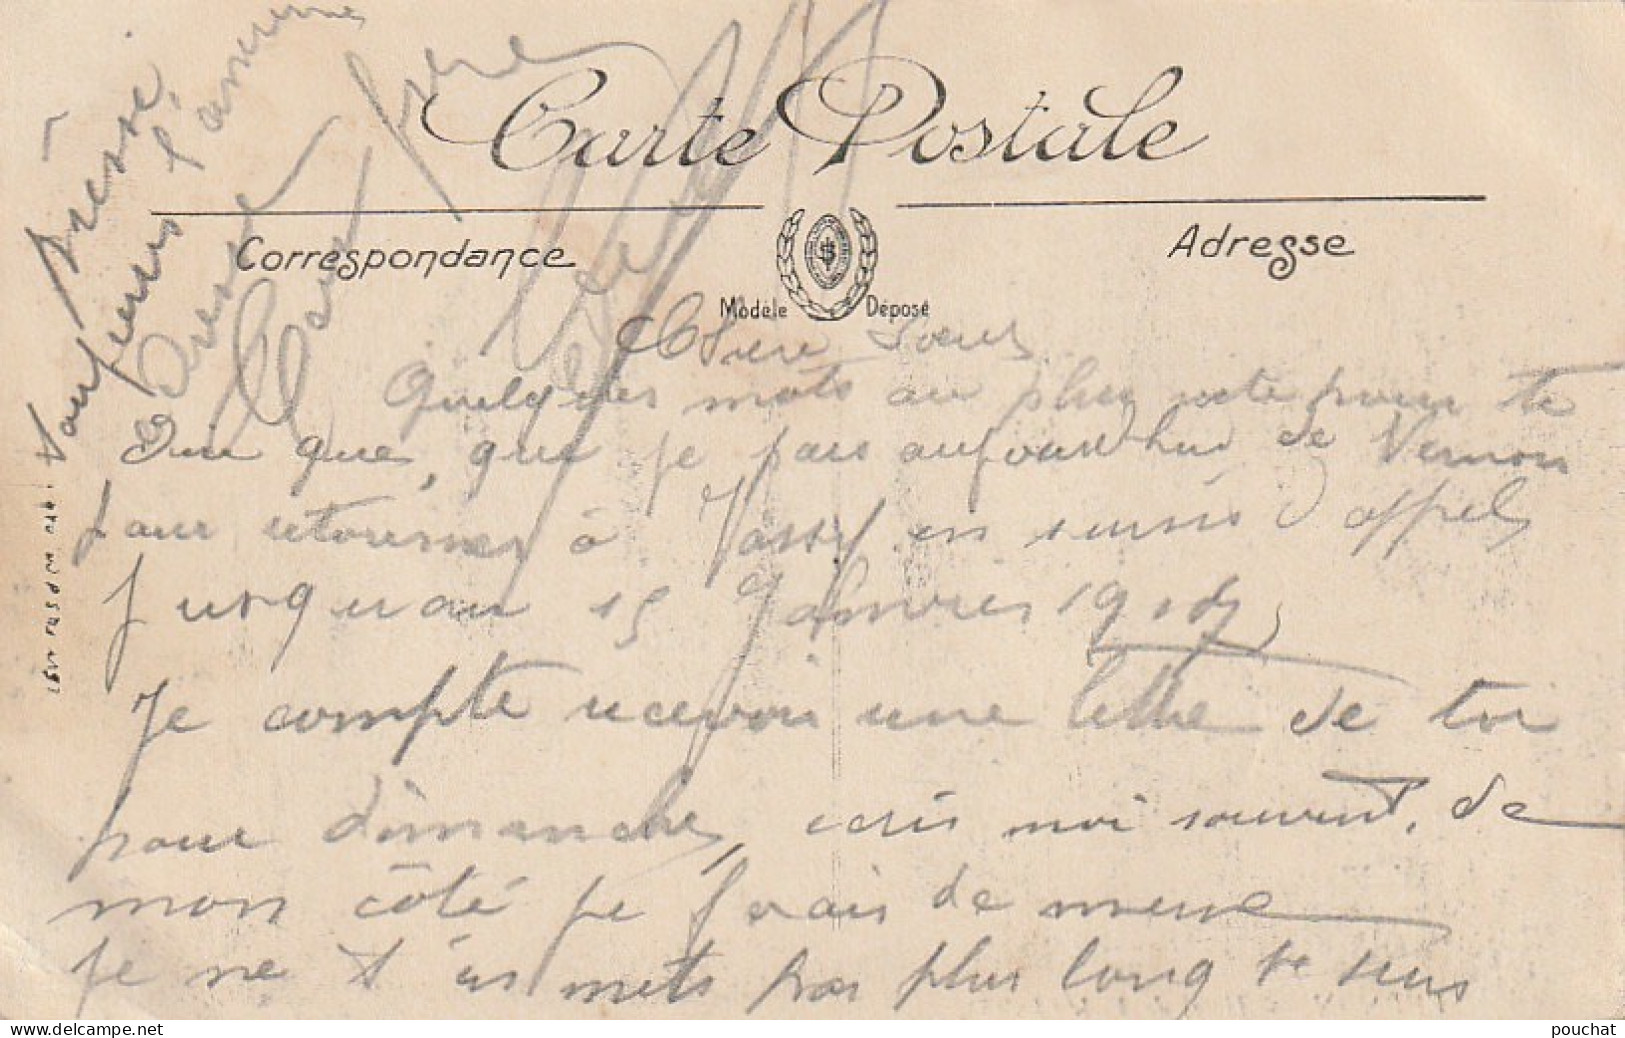 Carte Postale
Correspondance
Adresse
Modèle Déposé
Chère Soeur
Quelques mots au plus vite pour te
dire que, que je pars aujourd'hui de Vernon
pour retourner à Vassy en sursis d'appel
jusqu'au 15 Janvier 191
Je compte recevoir une lettre de toi
pour dimanche, écris moi souvent, de
mon côté je ferais de meme
je ne t'en mets pas plus long te
toujours l'
Ton frère